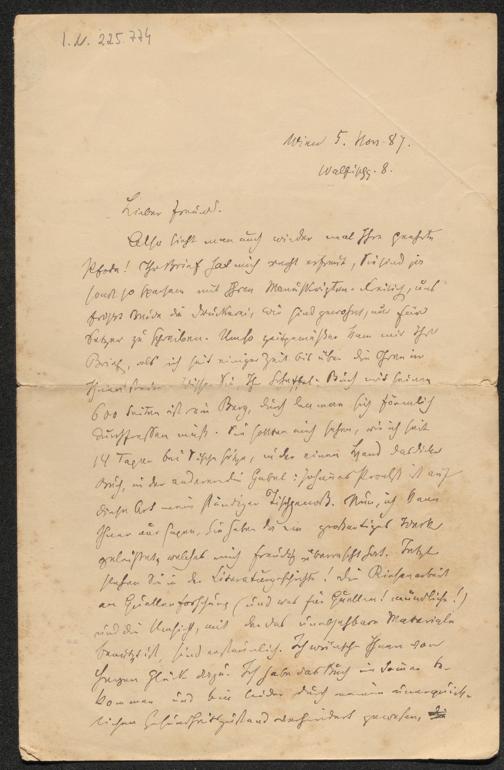 I.N. 225.774
Wien 5. Nov. 87.
Walfischg. 8.
Lieber Freund.
Also sieht man auch wieder mal Ihre geehrte
Pfote! Ihr Brief hat mich recht erfreut, Sie sind ja
sonst so sparsam mit Ihren Manuskripten
zu schreiben. Um so zeitgemäßer kam mir Ihr
Brief, als ich seit einiger Zeit bis über die Ohren in
Ihr Scheffel-Buch mit seinen
600 Seiten ist ein Berg, durch den man sich förmlich
durchfressen muß. Sie sollten mich sehen, wie ich seit
14 Tagen bei Tische sitze, in der einen Hand das dicke
Buch, in der anderen die Gabel: Johannes Proelß ist auf
diese Art mein ständiger Tischgenoß. Nun, ich kann
Ihnen nur sagen, Sie haben da ein großartiges Werk
geleistet, welches mich freudig überrascht hat. Jetzt
stehen Sie in der Literaturgeschichte! Die Riesenarbeit
an Quellenforschung (und was für Quellen! mündliche!)
und die Umsicht, mit der das unabsehbare Materiale
benützt ist, sind erstaunlich. Ich wünsche Ihnen von
Herzen Glück dazu. Ich habe das Buch in be-
kommen und bin leider durch meinen unerquick-
lichen Gesundheitszustand verhindert gewesen,